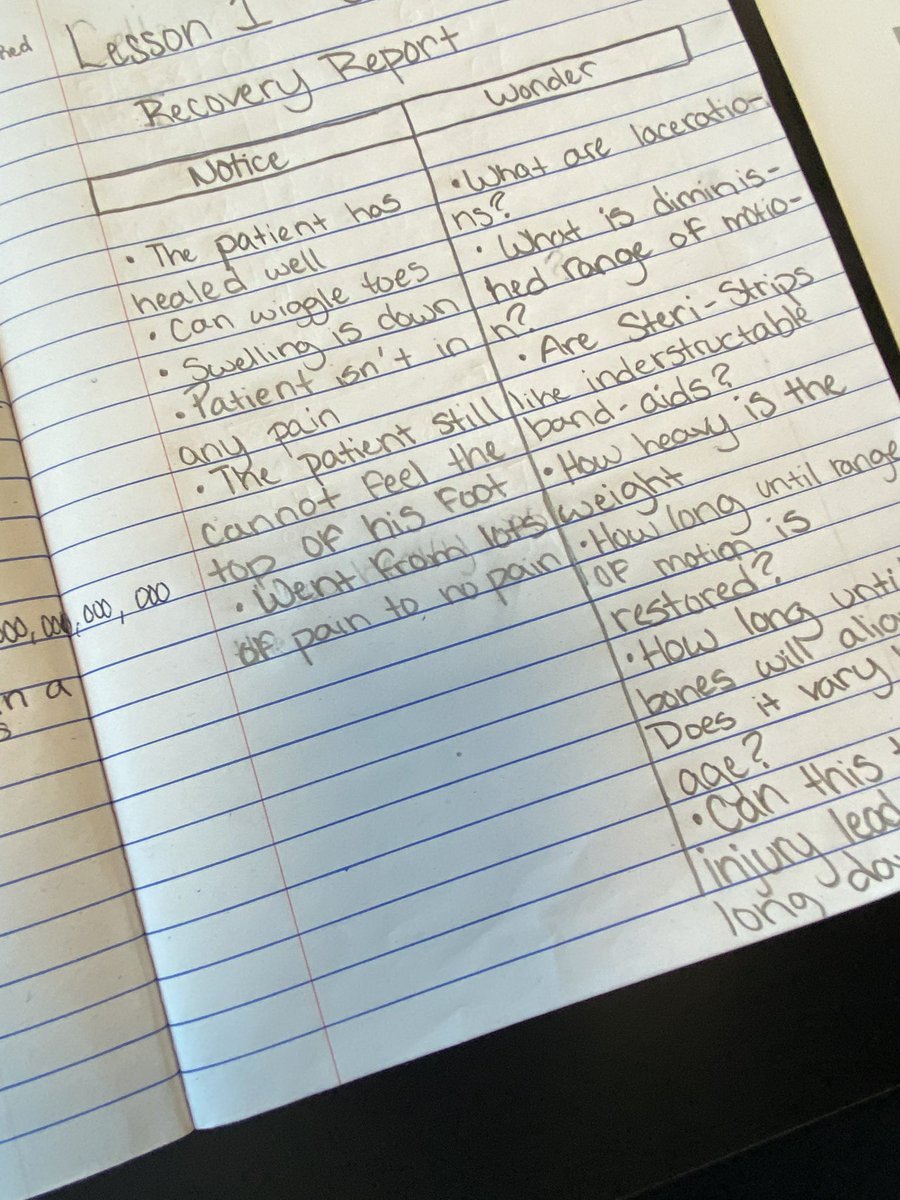 Lesson 1
Recovery Report
Notice
• The patient has
healed well
• Can wiggle toes
• Swelling is down
• Patient isn't in
any pain
• The patient still
cannot feel the
top of his foot
• Went from lots
of pain to no pain
Wonder
• What are laceratio-
ns?
• What is diminis-
hed range of motio-
n?
• Are Steri-Strips
like inderstructable
band-aids?
• How heavy is the
weight
• How long until range
of motion is
restored?
• How long until
bones will
Does it vary
age?
• Can this
injury lead
long
000,000,000
in a